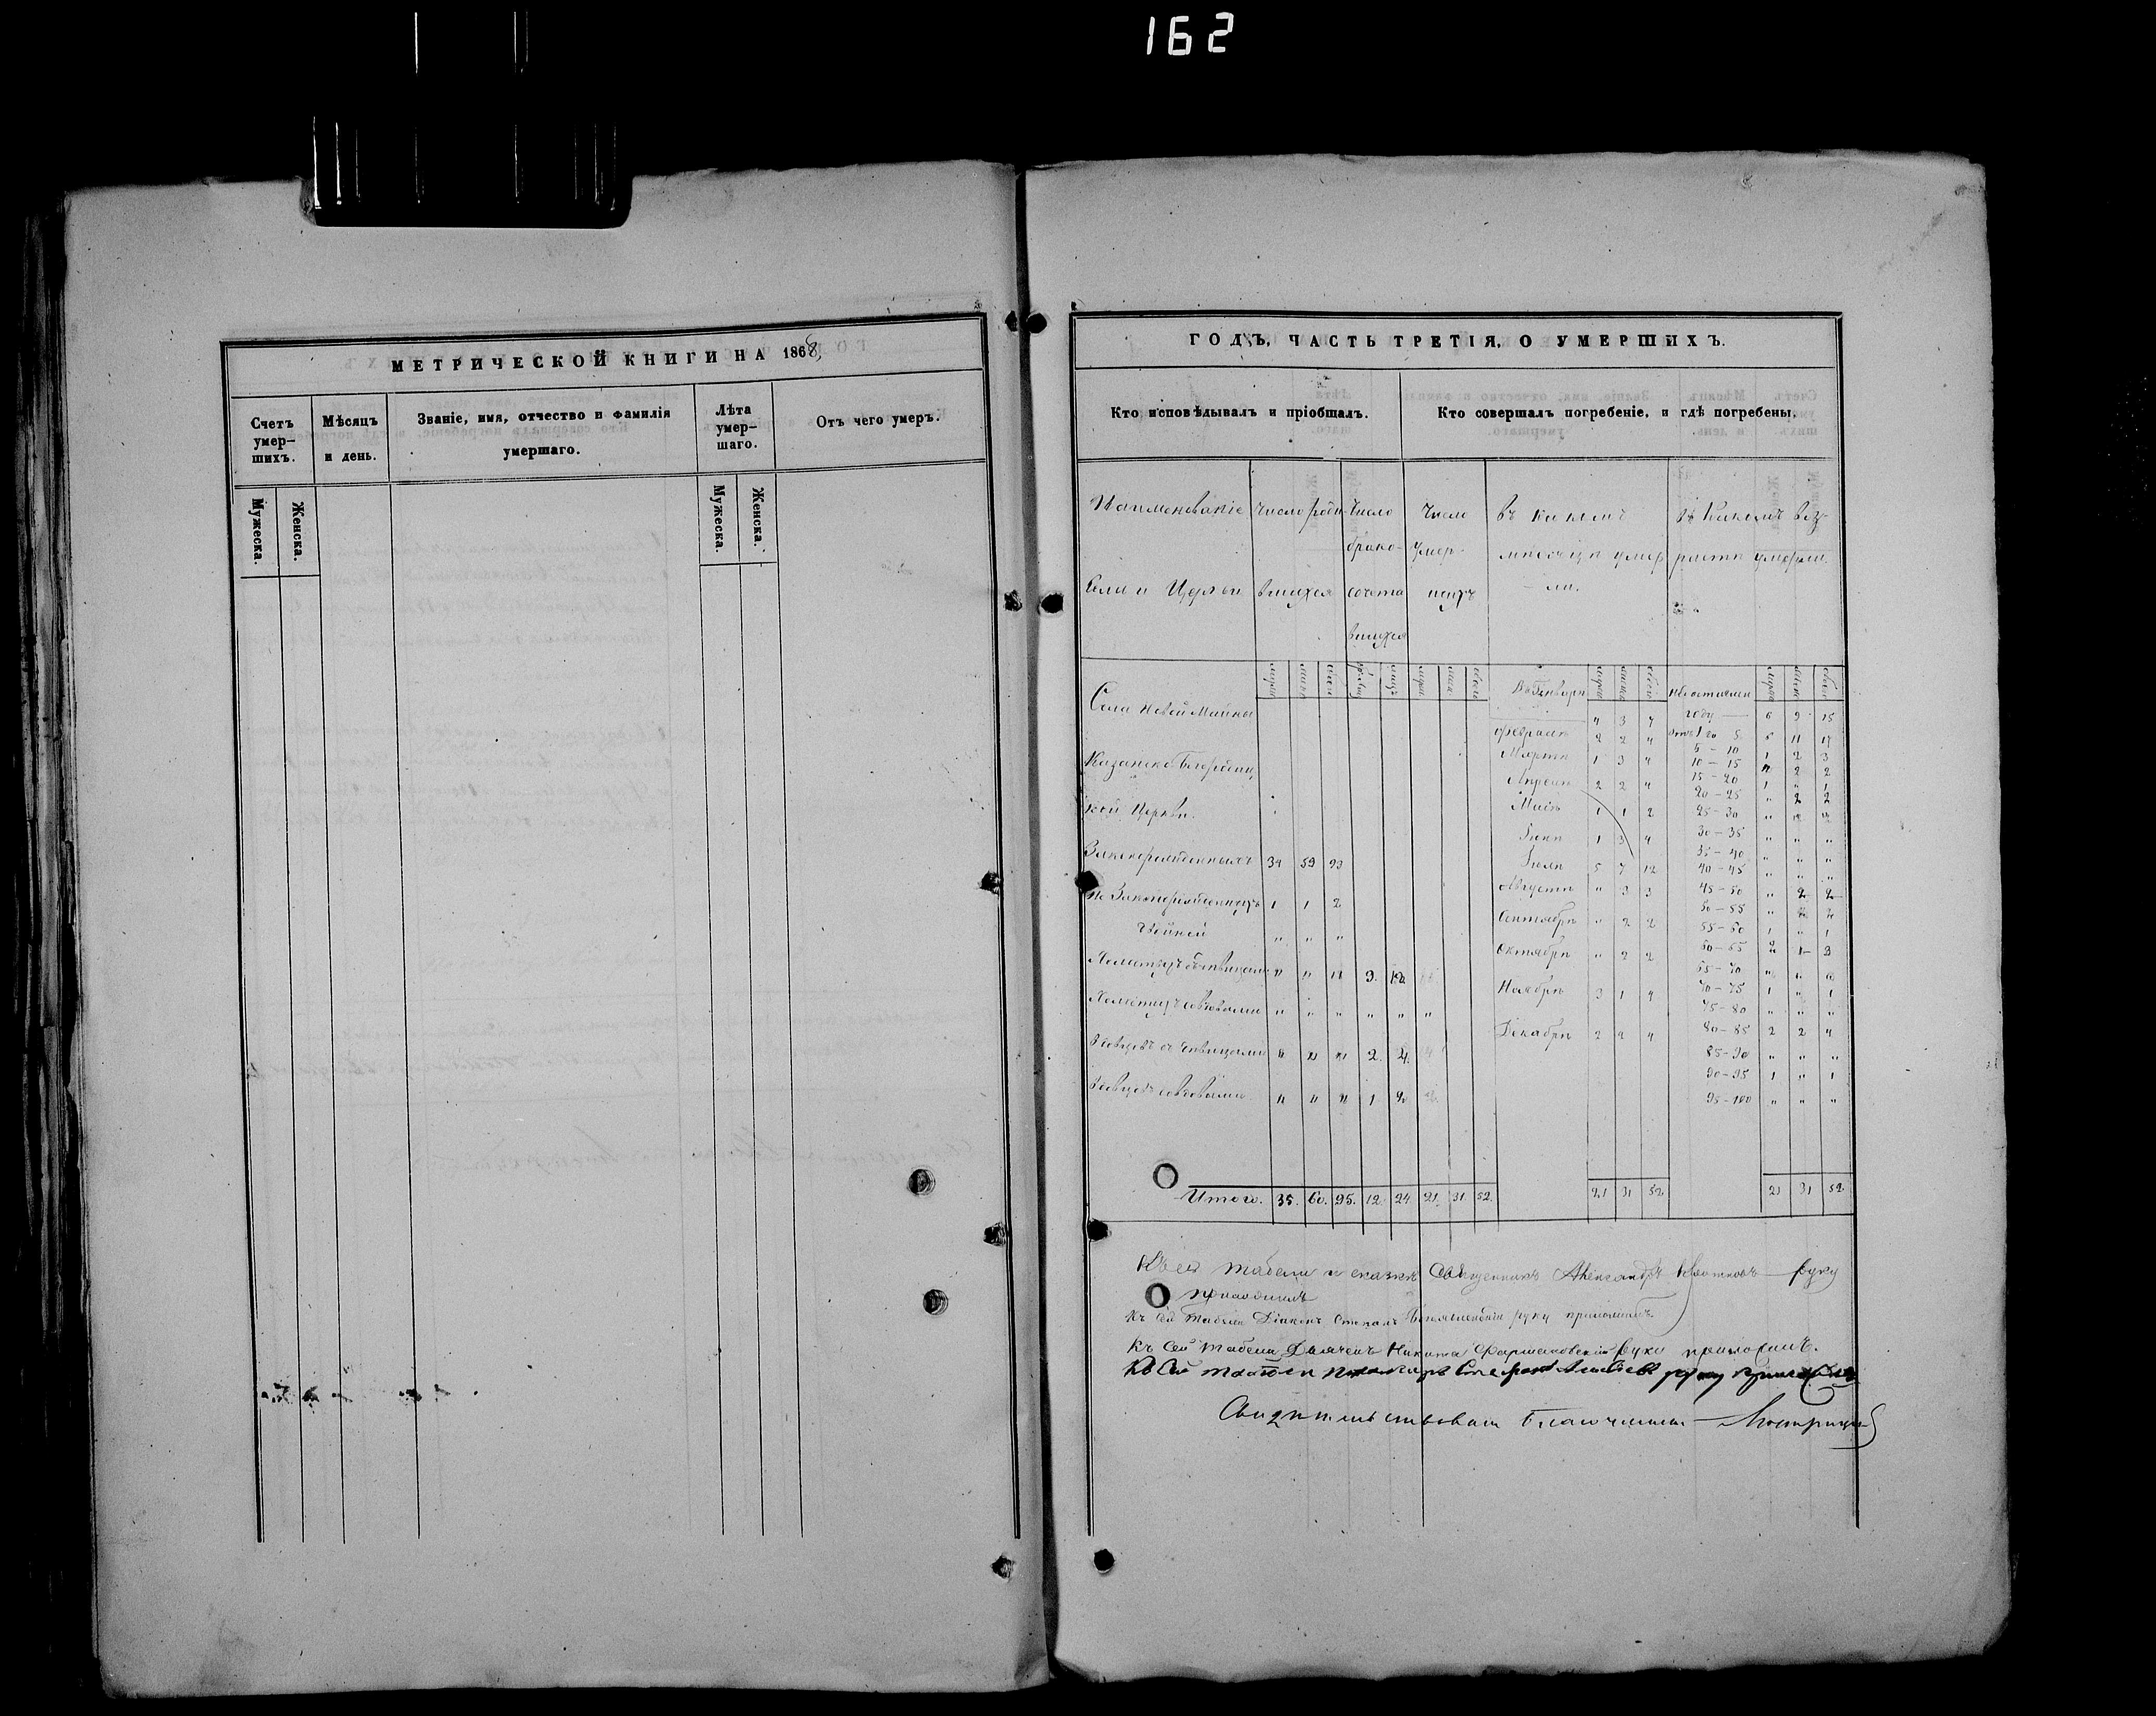 162
МЕТРИЧЕСКОЙ КНИГИ НА 1868,
Счетъ умер-шихъ.
Мѣсяцъ и день.
Званіе, имя, отчество и фамилія умершаго.
Лѣта умер-шаго.
Отъ чего умеръ.
Мужеска.
Женска.
Мужеска.
Женска.
ГОДЪ, ЧАСТЬ ТРЕТІЯ, О УМЕРШИХЪ.
Кто исповѣдывалъ и пріобщалъ.
Кто совершалъ погребеніе, и гдѣ погребены.
Наименованіе Села и Церкви
Число роди-вшихся
Число брако-сочета вшихся
Число умер-шихъ
въ какомъ мѣсяцѣ умер-ли.
въ какомъ воз-растѣ умерли.
Села Новой Майны
Казанско-Богородиц
кой Церкви.
Законорожденныхъ 34 59 93
Не Законорожденныхъ 1 1 2
Двойней " " "
Холостыхъ съ дѣвицами " " " 9. 18.
" " " " " "
Вдовцевъ съ дѣвицами " " " 2. 4.
Вдовцевъ со вдовами " " " 1 2.
Въ Январѣ 4 3 7
Февралѣ 2 2 4
Мартѣ 1 3 4
Апрѣлѣ 2 2 4
Маіѣ 1 1 2
Іюнѣ 1 3 4
Іюлѣ 5 7 12
Августѣ " 3 3
Сентябрѣ " 2 2
Октябрѣ " 2 2
Ноябрѣ 3 1 4
Декабрѣ 2 2 4
году — 6 9 15
5 — 10 1 2 3
10 — 15 " 2 2
15 — 20 1 " 1
20 — 25 " 2 2
25 — 30
30 — 35 " " "
35 — 40 " " "
40 — 45 " " "
45 — 50 " 2 2
50 — 55
55 — 60 1 " 1
60 — 65 2 1 3
65 — 70
70 — 75 1 " 1
75 — 80 " " "
80 — 85 2 2 4
85 — 90 " " "
90 — 95 1 " 1
95 — 100 " " "
Итого. 35. 60. 95. 12. 24. 21. 31. 52. 21 31 52 21 31 52
Къ сей табели Священникъ Александръ руку
приложилъ
Къ сей табели Діаконъ Степанъ руку приложилъ.
Къ сей табели Дьячекъ Никита руку приложилъ.
Къ сей табели Пономарь Стефанъ руку приложилъ
Свидѣтельствовалъ Благочинный